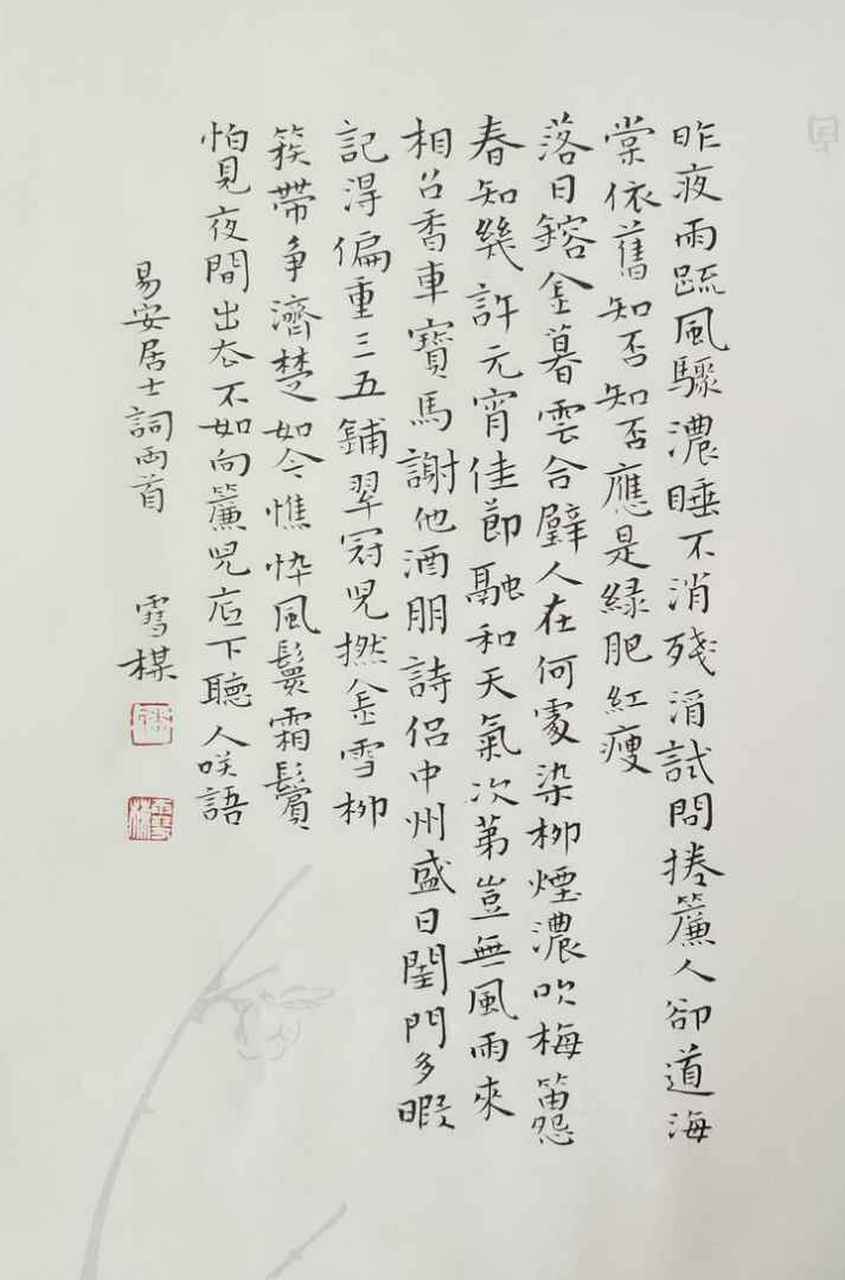 昨夜雨疏風驟濃睡不消残酒試問捲簾人卻道海
棠依舊知否知否應是緑肥紅瘦
落日鎔金暮雲合璧人在何處染柳煙濃吹梅笛怨
春知幾許元宵佳節融和天氣次第豈無風雨來
相召香車寶馬謝他酒朋詩侶中州盛日閨門多暇
記得偏重三五鋪翠冠兒撚金雪柳
簇帶爭濟楚如今憔悴風鬟霜鬢
怕見夜間出去不如向簾兒底下聽人咲語
易安居士詞兩首 雪楳